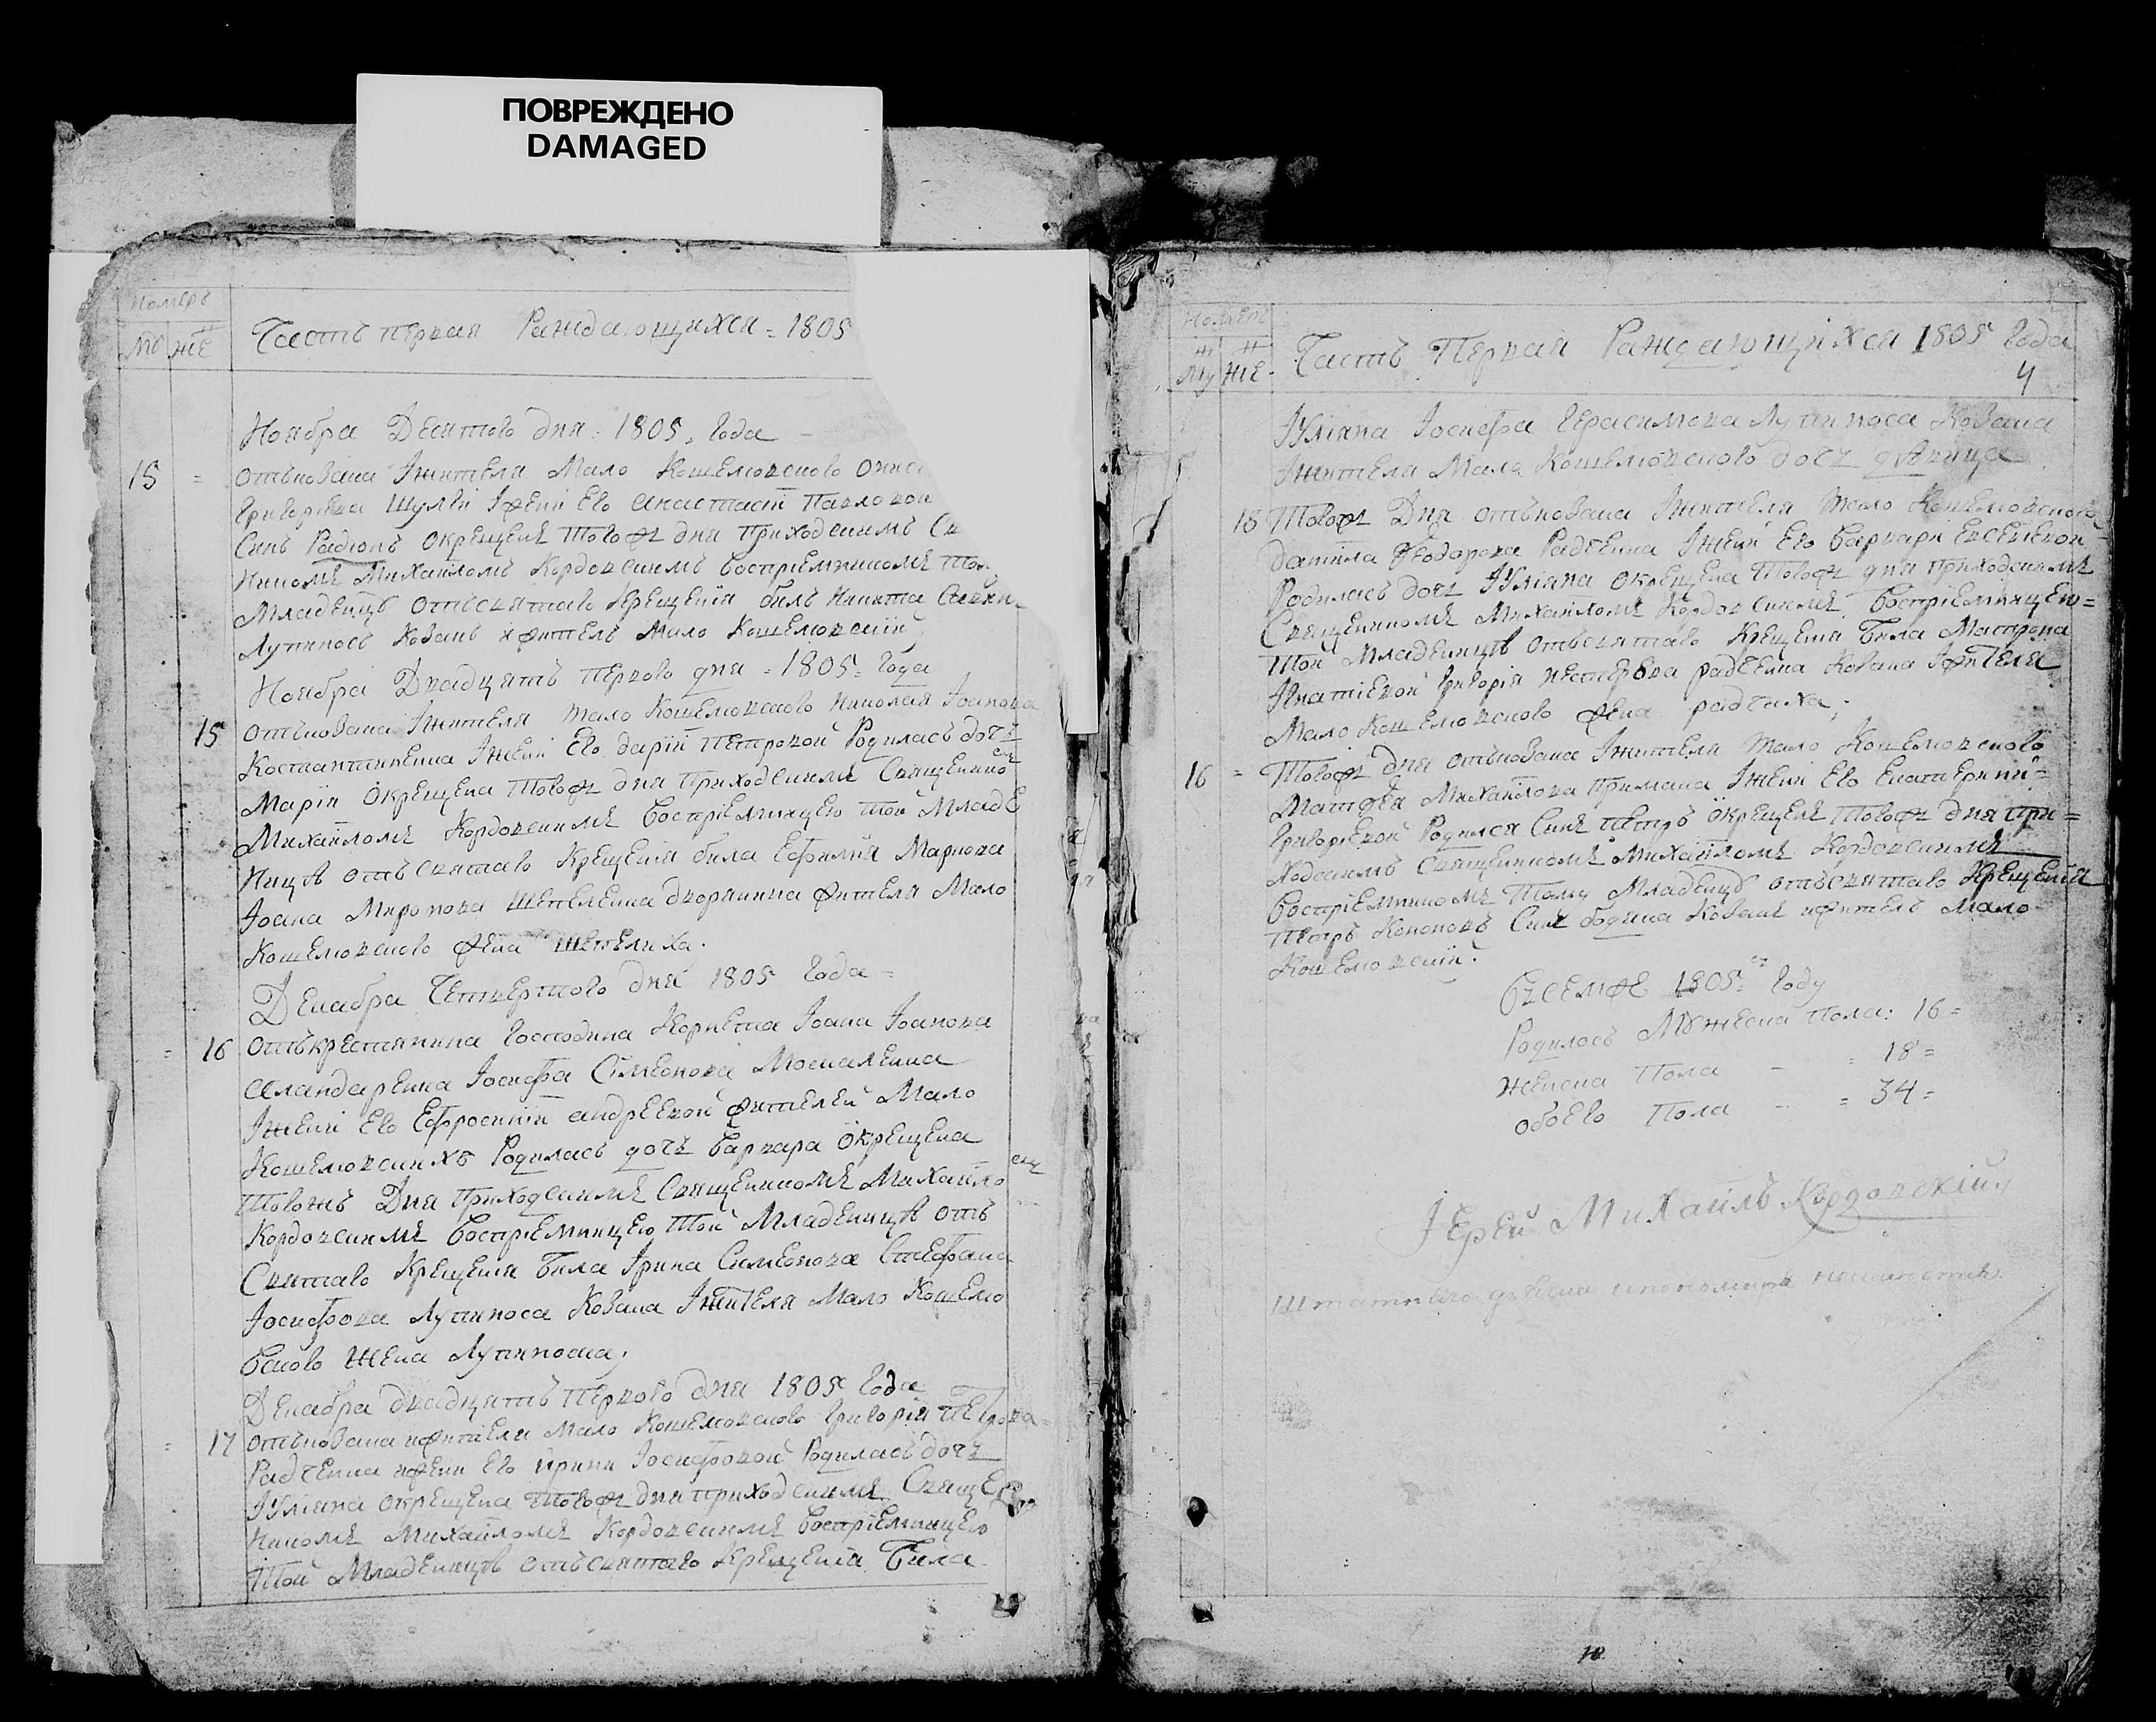 ПОВРЕЖДЕНО
DAMAGED
Номеръ
Му же
Часть первая Раждающихся = 1805
Ноября Десятого дня = 1805, года
15 = отъкозака Ижителя Мало Кошелювского
Григориева Шулги Іжени Его анастасіи Павловои
Синъ Радіонъ окрещенъ Тогожъ дня Приходскимъ Св
Никомъ Михайломъ Кордовскимъ Воспріемникомъ
Младенцу отъсвятаго крещенія билъ Никита
Лупиносъ козакъ ижитель Мало Кошелювскии
Ноября Двадцять Первого дня = 1805 = года
15 отъкозака Ижителя Мало Кошелювского Николая Іоанова
Костантиненка Іжени Его дарїи Петровои Родилась дочъ
Марія окрещена Тогожъ дня Приходскимъ Священно
Михайломъ Кордовскимъ Воспріемницею той Младе
Ницѣ отъ святаго Крещенія била Ефимия Маркова
Іоана Миронова Шепеленка дворянина жителя Мало
Кошелювского жена Шепелиха.
Декабра Четвертого дня 1805 года =
= 16 откъкрестянина Господина Корнета Іоана Іоанова
Іосифа Сімеонова Москаленка
Іжени Его Ефросиніи андреевой жителей Мало
Кошелювскихъ Родилась дочъ Варвара окрещена
Тогожъ Дня Приходскимъ Священникомъ Михайло
Кордовскимъ Воспріемницею Той Младеницѣ отъ
Святаго Крещенія Била Ірина Симеонова Стефана
Іосифова Лупиноса Козака Іжителя Мало Кошелю
Вского Жена Лупиноска;
Декабра двадцять первого дня 1805 года
= 17 отъкозака ижителя Мало Кошелювского Григорія Петрова =
Радченка ижени Его ирини Іосифовой Родилась дочъ
Іуліяна окрещена Тогожъ дня Приходскимъ Свяще
Никомъ Михайломъ Кордовскимъ Воспріемницею
Той Младеницѣ отъсвятаго Крещенія Била
Номеръ
Му же
Часть Первая Раждающихся 1805 года
4
Іуліяна Іосифа Герасимова Лупиноса Козака
Іжителя Мала Кошелювского дочъ дѣвица
18 Тогожъ Дня отъкозака Іжителя Мало Кошелювского
даніила Феодорова Радченка Іжени Его Варвари Евсеевой
Родилась дочъ Іуліяна окрещена Тогожъ дня Приходскимъ
Священникомъ Михайломъ Кордовскимъ Воспріемницею =
Той Младеницѣ отъсвятаго Крещенія Била Матрона
Ігнатіевой Григорія Нестерова радченка Козака Іжителя
Мало Кошелювского жена радчиха;
16 = Тогожъ дня отъкозака Іжителя Мало Кошелювского
Матфея Михайлова Примака Іжени Его Екатерини =
Григоріевой Родился Синъ Петръ окрещенъ Тогожъ дня при =
Ходскимъ Священникомъ Михайломъ Кордовскимъ
Воспріемникомъ Тому Младенцу отъсвятаго Крещенія
Петръ Кононовъ Синъ Козакъ ижитель Мало
Кошелювскій.
Въсемже 1805 году
Родилось Мужеска Пола: 16 =
Женска Пола - = 18 =
обоего Пола - = 34 =
Іерей Михаилъ Кордовскій